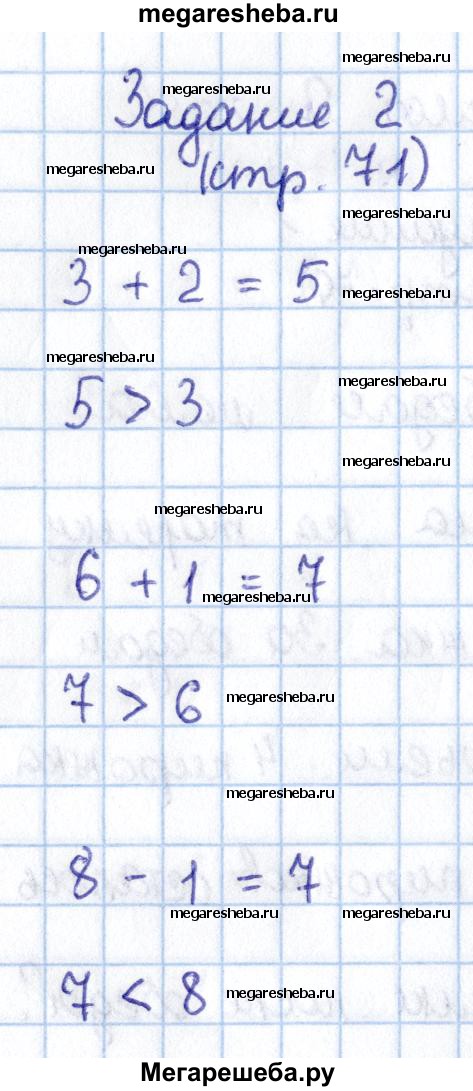 megaresheba.ru
megaresheba.ru
megaresheba.ru
Задание 2
megaresheba.ru
(стр. 71)
megaresheba.ru
megaresheba.ru
3 + 2 = 5
megaresheba.ru
megaresheba.ru
megaresheba.ru
5 > 3
megaresheba.ru
megaresheba.ru
6 + 1 = 7
megaresheba.ru
7 > 6
megaresheba.ru
megaresheba.ru
8 - 1 = 7
megaresheba.ru megaresheba.ru
7 < 8
megaresheba.ru
Мегарешеба.ру